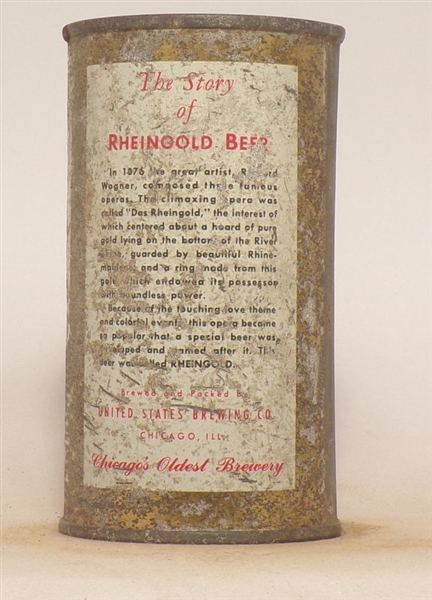 The Story
of
RHEINGOLD BEER
In 1876 the great artist, Richard
Wagner, composed these famous
operas. The climaxing opera was
called "Das Rheingold," the interest of
which centered about a hoard of pure
gold lying on the bottom of the River
guarded by beautiful Rhine-
maidens, and a ring made from this
gold which endowed its possessor
with boundless power.
Because of the touching love theme
and colorful events this opera became
so popular that a special beer was
developed and named after it. This
beer was called RHEINGOLD.
Brewed and Packed by
UNITED STATES BREWING CO.
CHICAGO, ILL.
Chicago's Oldest Brewery